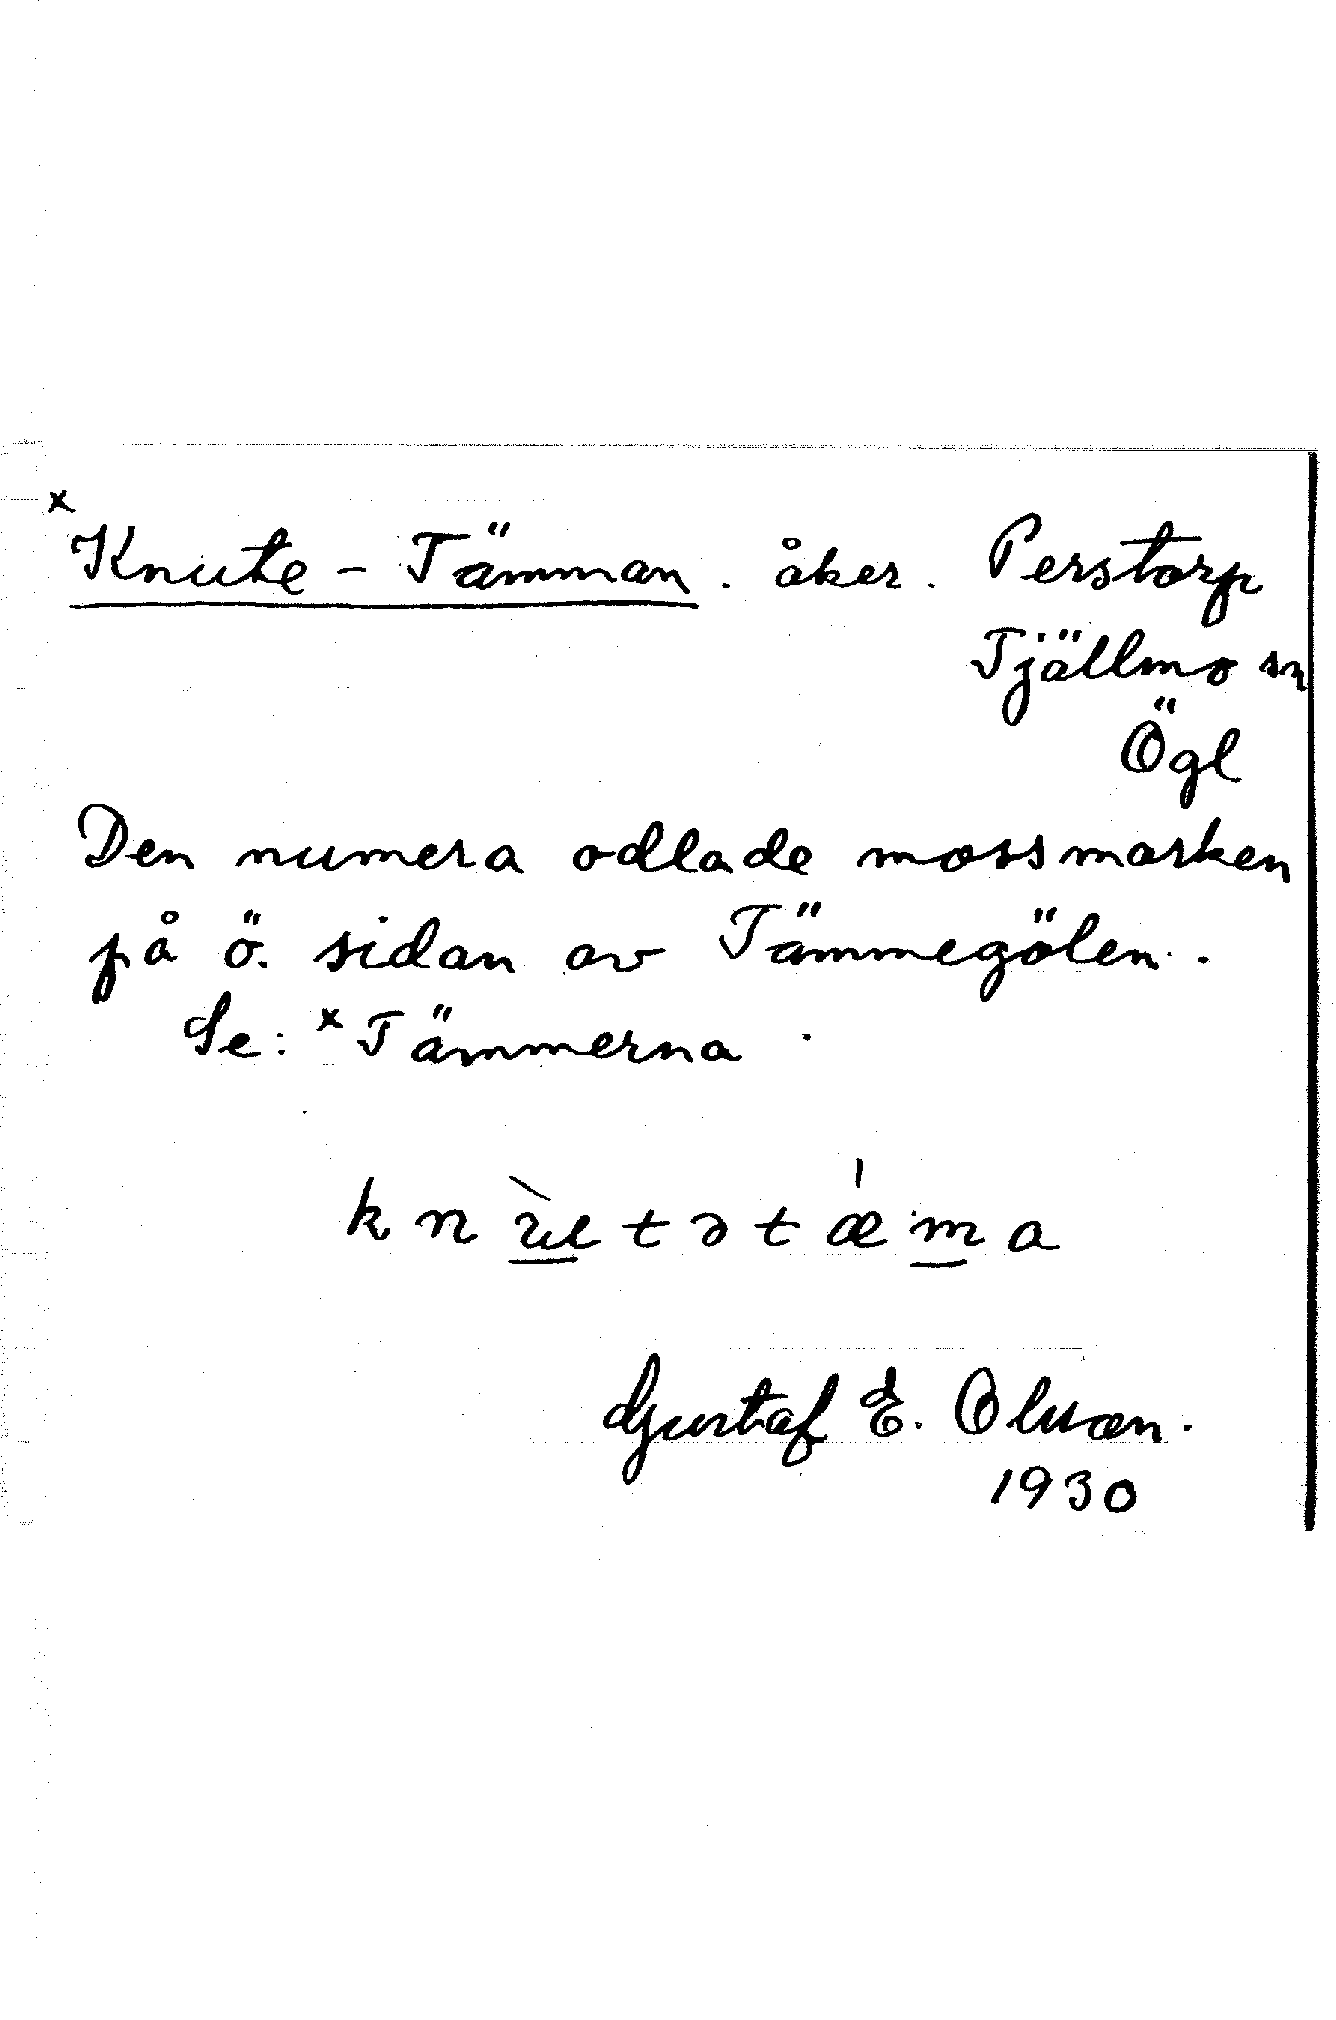 x
Knute-Tämman. åker. Perstorp
Tjällmo sn
Ögl
Den numera odlade mossmarken
på ö. sidan av Tämmegölen.
Se: xTämmerna.
Gustaf E. Olsson.
1930